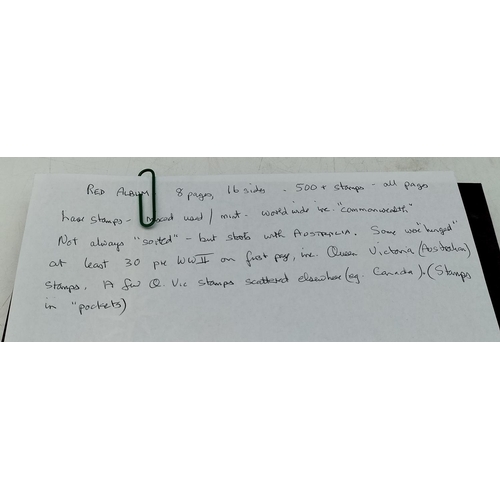 RED ALBUM 8 pages, 16 sides - 500+ stamps - all pages
have stamps - mixed used / mint - world wide inc. "commonwealth."
Not always "sorted" - but starts with AUSTRALIA. Some were "hinged"
at least 30 pre WWII on first page, inc. Queen Victoria (Australian)
stamps. A few Q. Vic stamps scattered elsewhere (eg. Canada). (Stamps
in "pockets)